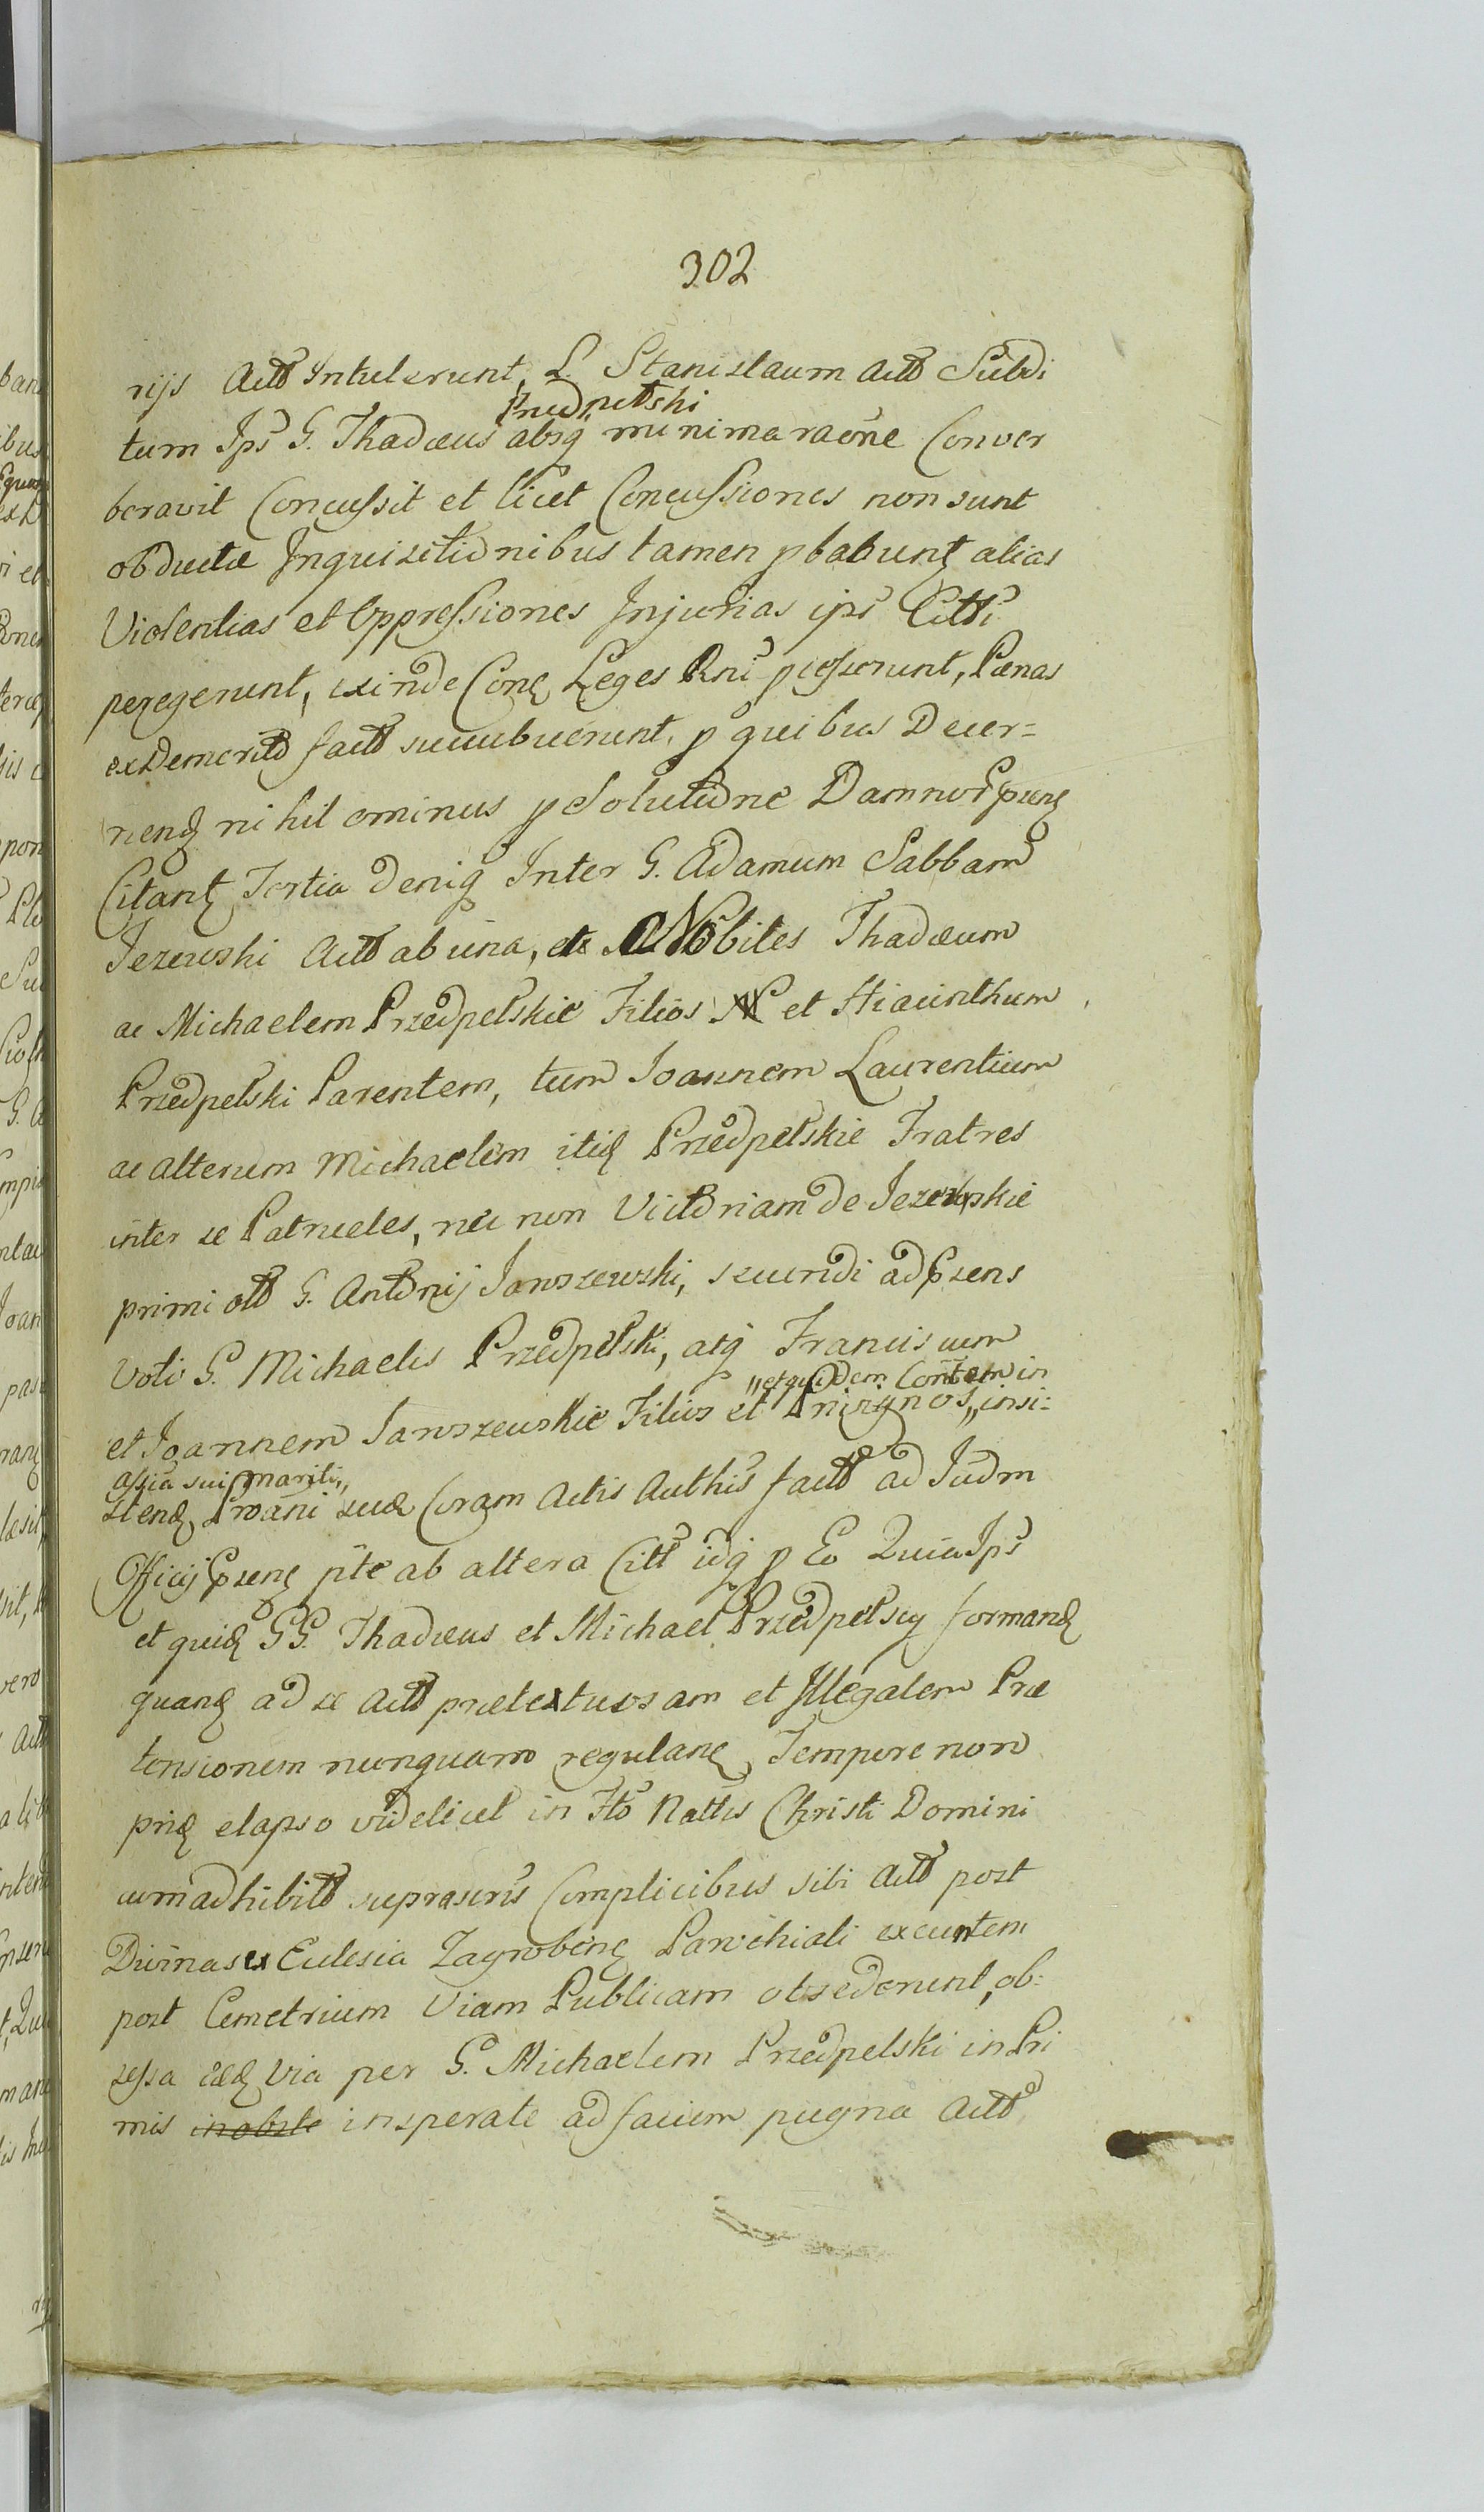 302
rijs Actō Intulerunt, L. Stanislaum Actō Subdi
Przedpełski
tum Ips G. Thadæus absq minima raōne Conver
beravit Concussit et licet Concussiones non sunt
obductæ Inquisitionibus tamen pbabunt alias
Violentias et Oppressiones Injurias ipsi Citti
peregerunt, exinde Conę Leges Rni picesserunt, Pœnas
ex Demerito facto succubuerunt, p quibus Decer=
nenę nihilominus p Solutione Damnor pzenę
Citantę Tertia deniq Inter G. Adamum Sabbam
Jezewski Actō ab una, et Nobiles Thadæum
ac Michaelem Przedpełskie Filios et Hiacinthum
Przedpełski Parentem, tum Joannem Laurentium
ac alterum Michaelem itię Przedpełskie Fratres
inter se Patrueles, nec non Victoriam de Jezewskie
primi otō G. Antonij Janszewski, secundi ad pzens
Voti G. Michaelis Przedpełski, atq Franciscum
"et quidem Contem in
et Joannem Janszewskie Filios et Privignos,, insi=
assia sui mariti,,
stenę Proani suæ Coram Actis Authis facto ad Judm
Officij pzenę pte ab altera Citt idq p Eo Quia Ips
et quię GG. Thadæus et Michael Przedpełscy formanę
quanę ad se Actō prætextuosam et Illegalem Præ
tensionem nunquam regulanę, Tempore non
prię elapso videlicet in Fto Nattis Christi Domini
cum adhibito suprascris Complicibus sibi Actō post
Divinas ex Eclesia Zagrobenę Parochiali exeuntem
post Cemetrium Viam Publicam obsederunt, ob=
sessa eaę Via per G. Michaelem Przedpełski in Pri
mis inobste insperate ad faciem pugna Actō